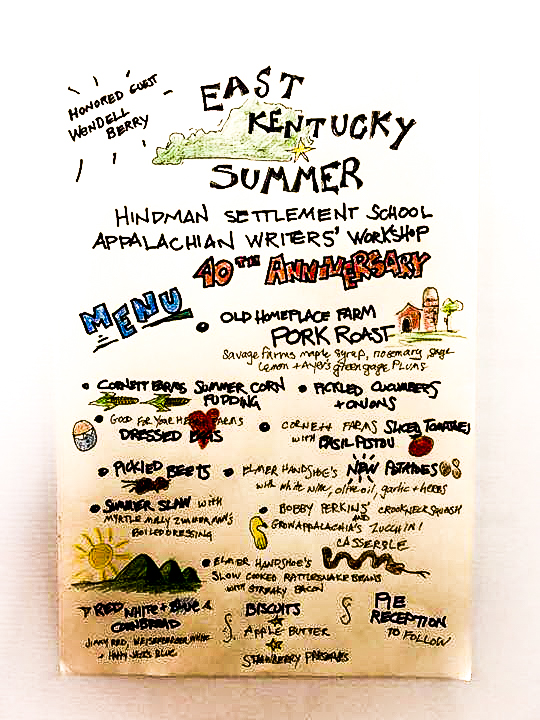 HONORED GUEST
WENDELL
BERRY
EAST
KENTUCKY
SUMMER
HINDMAN SETTLEMENT SCHOOL
APPALACHIAN WRITERS' WORKSHOP
40TH ANNIVERSARY
MENU
• OLD HOMEPLACE FARM
PORK ROAST
Savage farms maple syrup, rosemary, sage
lemon + Ayer's greengage PLUMS
• CORNETT FARMS SUMMER CORN
PUDDING
• PICKLED CUCUMBERS
+ ONIONS
• GOOD FOR YOUR HEART FARMS
DRESSED EGGS
• CORNETT FARMS SLICED TOMATOES
WITH BASIL PISTOU
• PICKLED BEETS
• ELMER HANDSHOE'S NEW POTATOES
with white wine, olive oil, garlic + herbs
• SUMMER SLAW with
MYRTLE MOLLY ZIMMERMANN'S
BOILED DRESSING
• BOBBY PERKINS' CROOKNECK SQUASH
AND
GROWAPPALACHIA'S ZUCCHINI
CASSEROLE
• ELMER HANDSHOE'S
SLOW COOKED RATTLESNAKE BEANS
WITH STREAKY BACON
RED WHITE + BLUE
CORNBREAD
JIMMY RED, WEISENBERGER WHITE
BLUE
BISCUITS
APPLE BUTTER
STRAWBERRY PRESERVES
PIE
RECEPTION
TO FOLLOW